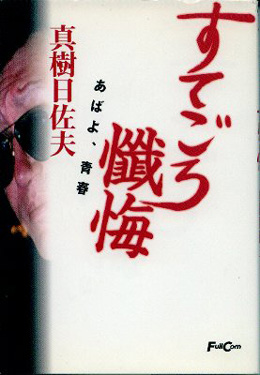 すてごろ
懺悔
あばよ、青春
真樹日佐夫
FullCom